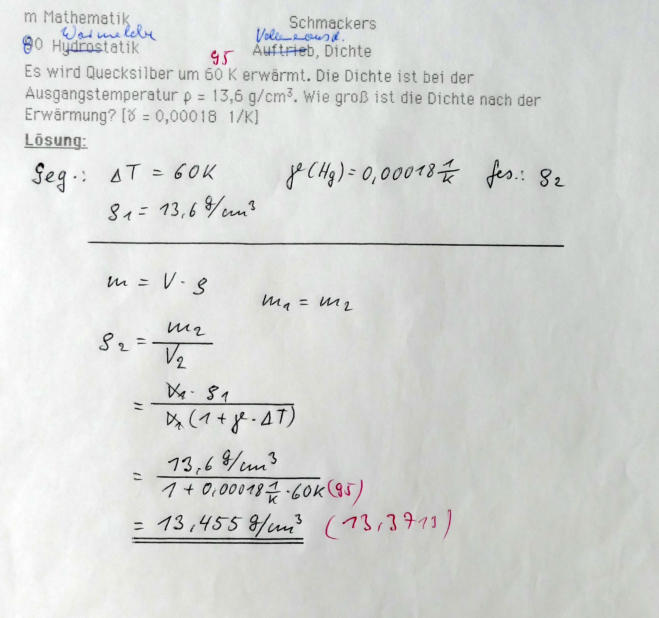 m Mathematik Schmackers
Wärmelehre Volumenausd.
80 Hydrostatik Auftrieb, Dichte
95
Es wird Quecksilber um 60 K erwärmt. Die Dichte ist bei der
Ausgangstemperatur ρ = 13,6 g/cm³. Wie groß ist die Dichte nach der
Erwärmung? [γ = 0,00018 1/K]
Lösung:
geg.: ΔT = 60K γ(Hg) = 0,00018 1/K ges.: ρ2
ρ1 = 13,6 g/cm³
m = V · ρ
m1 = m2
ρ2 = m2 / V2
= V1 · ρ1 / V1 (1 + γ · ΔT)
= 13,6 g/cm³ / 1 + 0,00018 1/K · 60K (95)
= 13,455 g/cm³ (13,3713)